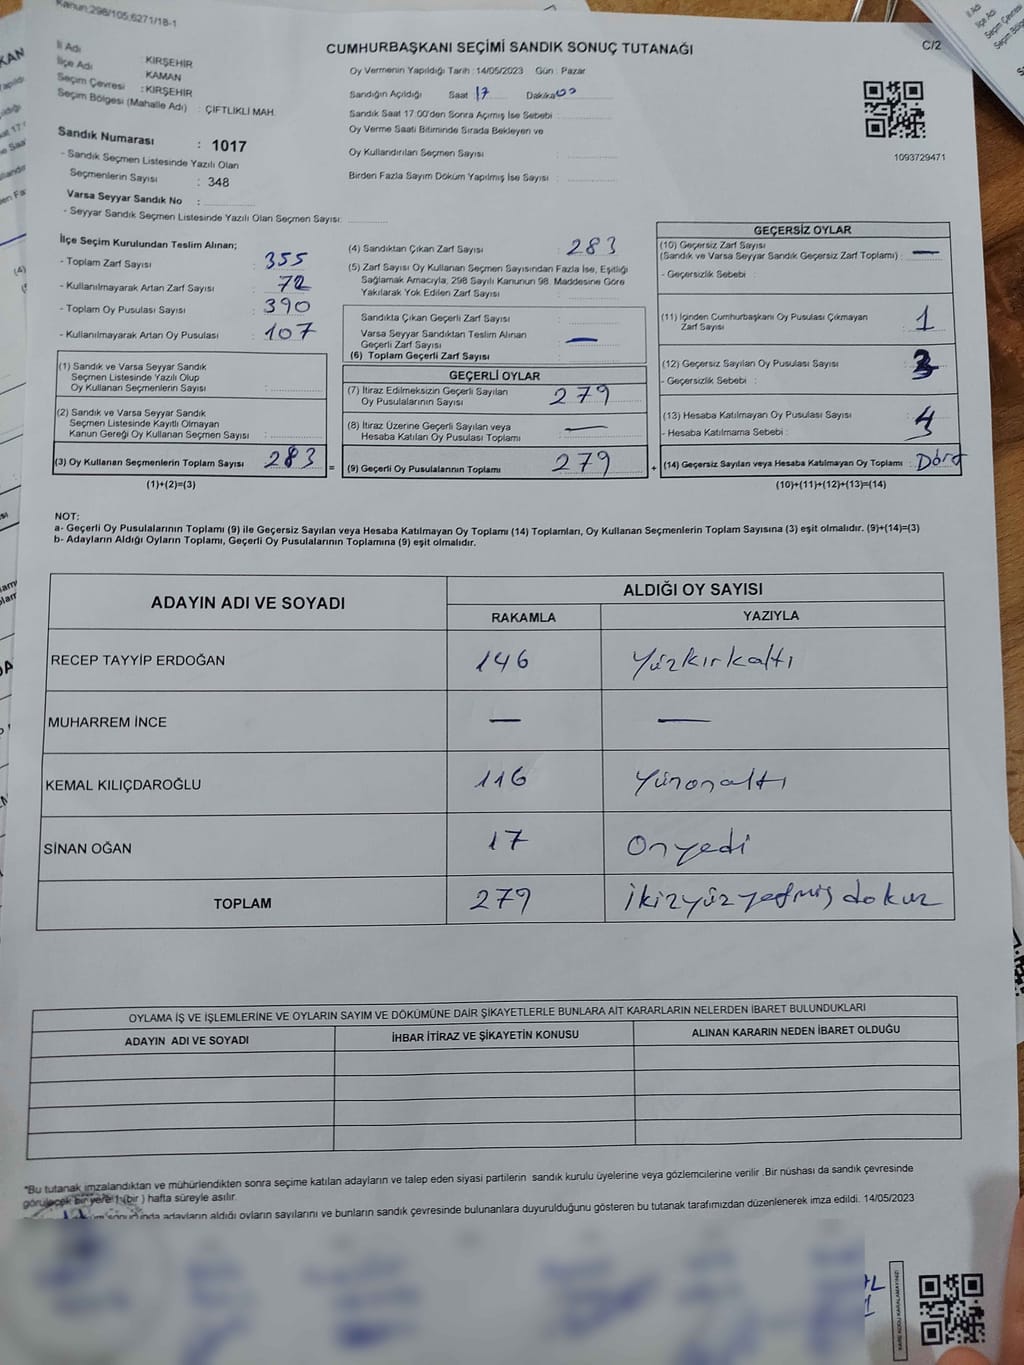 Kanun:298/105;6271/18-1
CUMHURBAŞKANI SEÇİMİ SANDIK SONUÇ TUTANAĞI
C/2
İl Adı : KIRŞEHİR
İlçe Adı KAMAN
Seçim Çevresi : KIRŞEHİR
Seçim Bölgesi (Mahalle Adı) : ÇİFTLİKLİ MAH.
Sandık Numarası : 1017
- Sandık Seçmen Listesinde Yazılı Olan
Seçmenlerin Sayısı : 348
Varsa Seyyar Sandık No :
- Seyyar Sandık Seçmen Listesinde Yazılı Olan Seçmen Sayısı:
Oy Vermenin Yapıldığı Tarih : 14/05/2023 Gün : Pazar
Sandığın Açıldığı Saat 17 Dakika 00
Sandık Saat 17.00'den Sonra Açımış İse Sebebi
Oy Verme Saati Bitiminde Sırada Bekleyen ve
Oy Kullandırılan Seçmen Sayısı
Birden Fazla Sayım Döküm Yapılmış İse Sayısı
1093729471
İlçe Seçim Kurulundan Teslim Alınan;
- Toplam Zarf Sayısı : 355
- Kullanılmayarak Artan Zarf Sayısı : 72
- Toplam Oy Pusulası Sayısı : 390
- Kullanılmayarak Artan Oy Pusulası : 107
(1) Sandık ve Varsa Seyyar Sandık
Seçmen Listesinde Yazılı Olup
Oy Kullanan Seçmenlerin Sayısı
(2) Sandık ve Varsa Seyyar Sandık
Seçmen Listesinde Kayıtlı Olmayan
Kanun Gereği Oy Kullanan Seçmen Sayısı :
(3) Oy Kullanan Seçmenlerin Toplam Sayısı 283 =
(1)+(2)=(3)
(4) Sandıktan Çıkan Zarf Sayısı : 283
(5) Zarf Sayısı Oy Kullanan Seçmen Sayısından Fazla İse, Eşitliği
Sağlamak Amacıyla, 298 Sayılı Kanunun 98. Maddesine Göre
Yakılarak Yok Edilen Zarf Sayısı
Sandıkta Çıkan Geçerli Zarf Sayısı
Varsa Seyyar Sandıktan Teslim Alınan
Geçerli Zarf Sayısı —
(6) Toplam Geçerli Zarf Sayısı
GEÇERLİ OYLAR
(7) İtiraz Edilmeksizin Geçerli Sayılan
Oy Pusulalarının Sayısı 279
(8) İtiraz Üzerine Geçerli Sayılan veya
Hesaba Katılan Oy Pusulası Toplamı —
(9) Geçerli Oy Pusulalarının Toplamı 279 +
GEÇERSİZ OYLAR
(10) Geçersiz Zarf Sayısı
(Sandık ve Varsa Seyyar Sandık Geçersiz Zarf Toplamı) : —
- Geçersizlik Sebebi :
(11) İçinden Cumhurbaşkanı Oy Pusulası Çıkmayan
Zarf Sayısı 1
(12) Geçersiz Sayılan Oy Pusulası Sayısı 3
- Geçersizlik Sebebi :
(13) Hesaba Katılmayan Oy Pusulası Sayısı
- Hesaba Katılmama Sebebi : 4
(14) Geçersiz Sayılan veya Hesaba Katılmayan Oy Toplamı : Dört
(10)+(11)+(12)+(13)=(14)
NOT:
a- Geçerli Oy Pusulalarının Toplamı (9) ile Geçersiz Sayılan veya Hesaba Katılmayan Oy Toplamı (14) Toplamları, Oy Kullanan Seçmenlerin Toplam Sayısına (3) eşit olmalıdır. (9)+(14)=(3)
b- Adayların Aldığı Oyların Toplamı, Geçerli Oy Pusulalarının Toplamına (9) eşit olmalıdır.
ADAYIN ADI VE SOYADI
ALDIĞI OY SAYISI
RAKAMLA YAZIYLA
RECEP TAYYİP ERDOĞAN 146 Yüzkırkaltı
MUHARREM İNCE — —
KEMAL KILIÇDAROĞLU 116 Yüzonaltı
SİNAN OĞAN 17 Onyedi
TOPLAM 279 İkizyüzyetmiş dokuz
OYLAMA İŞ VE İŞLEMLERİNE VE OYLARIN SAYIM VE DÖKÜMÜNE DAİR ŞİKAYETLERLE BUNLARA AİT KARARLARIN NELERDEN İBARET BULUNDUKLARI
ADAYIN ADI VE SOYADI İHBAR İTİRAZ VE ŞİKAYETİN KONUSU ALINAN KARARIN NEDEN İBARET OLDUĞU
*Bu tutanak imzalandıktan ve mühürlendikten sonra seçime katılan adayların ve talep eden siyasi partilerin sandık kurulu üyelerine veya gözlemcilerine verilir .Bir nüshası da sandık çevresinde
görülecek bir yere 1 (bir ) hafta süreyle asılır.
adayların aldığı oyların sayılarını ve bunların sandık çevresinde bulunanlara duyurulduğunu gösteren bu tutanak tarafımızdan düzenlenerek imza edildi. 14/05/2023